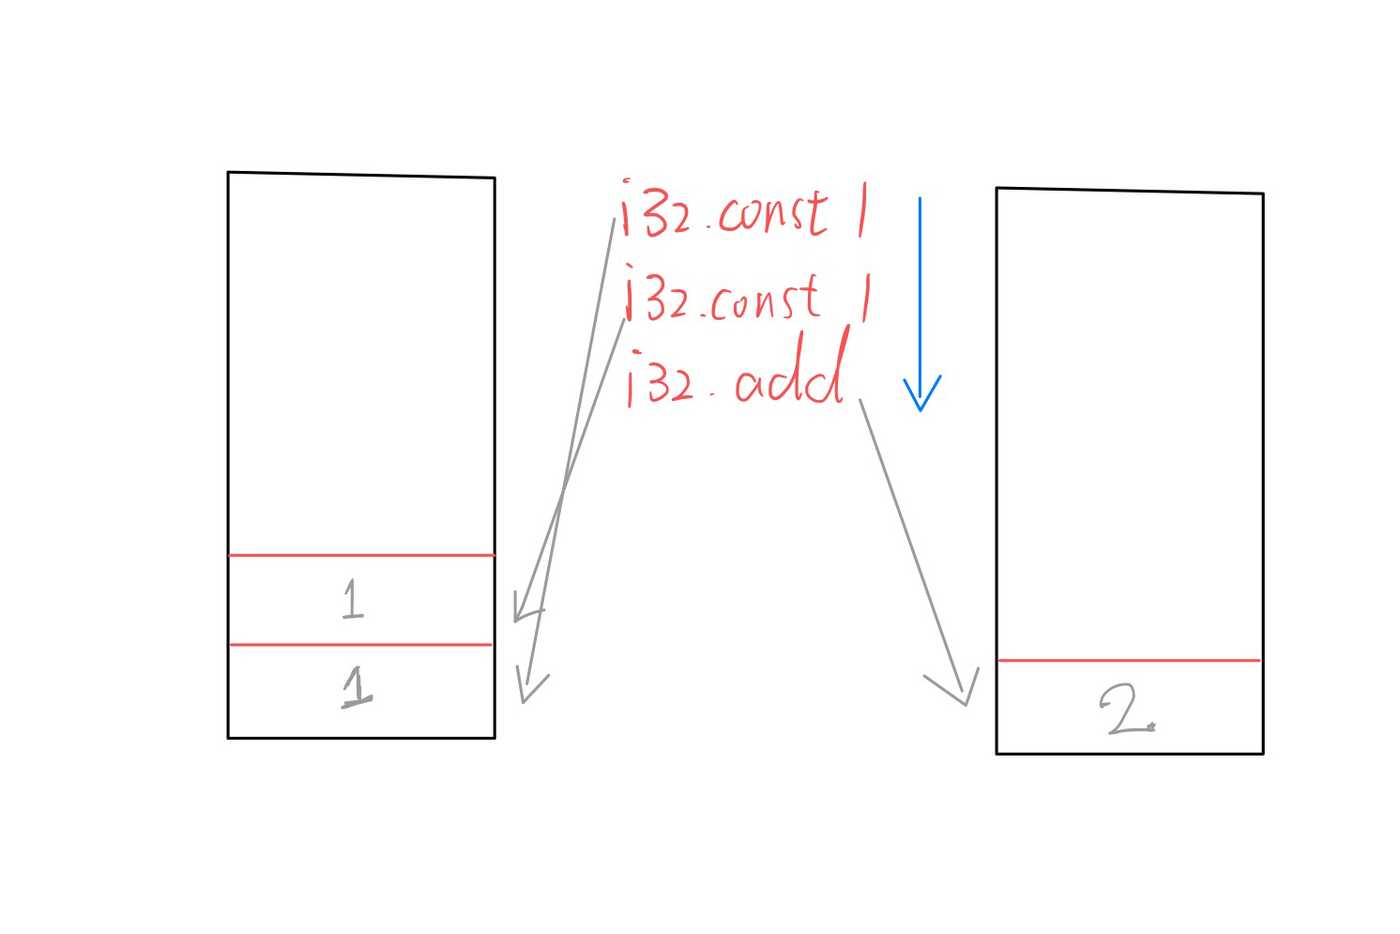 i32.const 1
i32.const 1
i32.add
1
1
2